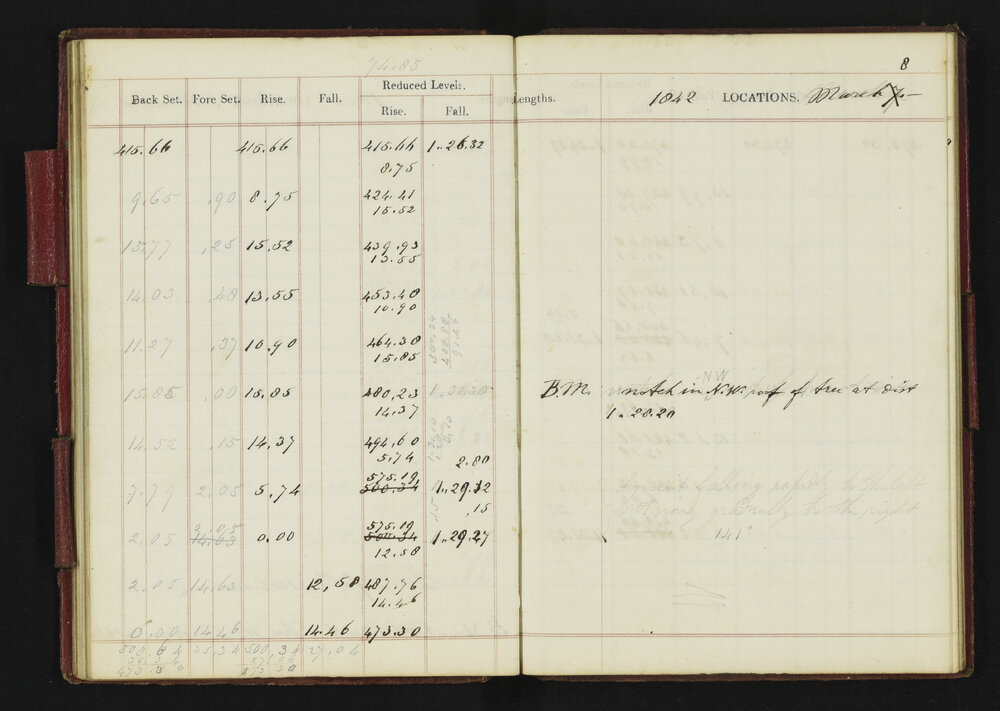 74.85
8
Reduced Levels.
Back Set. Fore Set. Rise. Fall. Rise. Fall. Lengths. 1842 LOCATIONS. March
415.66 415.66 415.66 1..26.32
8.75
9.65 .90 8.75 424.41
15.52
15.77 .25 15.52 439.93
13.55
14.03 .48 13.55 453.48
10.90
11.27 .37 10.90 464.38
15.85
NW
15.85 .00 15.85 480.23 B.M. notch in N.W. root of tree at dist
14.37 1..28.20
14.52 .15 14.37 494.60
5.74 2.80
575.19
7.79 2.05 5.74 500.34 1..29.32
.15
2.05 575.19
2.05 14.63 0.00 500.34 1..29.27
12.58 141°
2.05 14.63 12.58 487.76
14.46
0.00 14.46 14.46 473.30
27.04